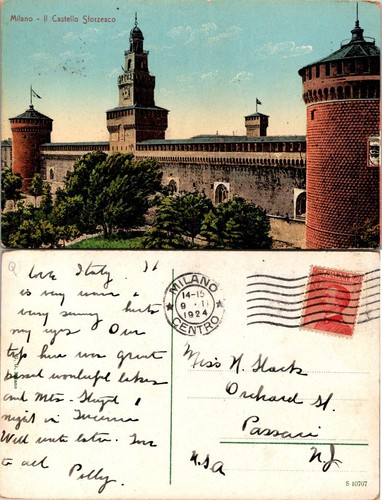 Milano - Il Castello Sforzesco
Love Italy. It
is very warm &
very sunny hurts
my eyes Our
trip here was great
passed wonderful lakes
and Mts -
night in Lucerne
Will write later. Love
to all Polly.
MILANO
14-15
9 · II
1924
CENTRO
Miss H.
Orchard St.
Passaic
N.J
U.S.A
S 10707